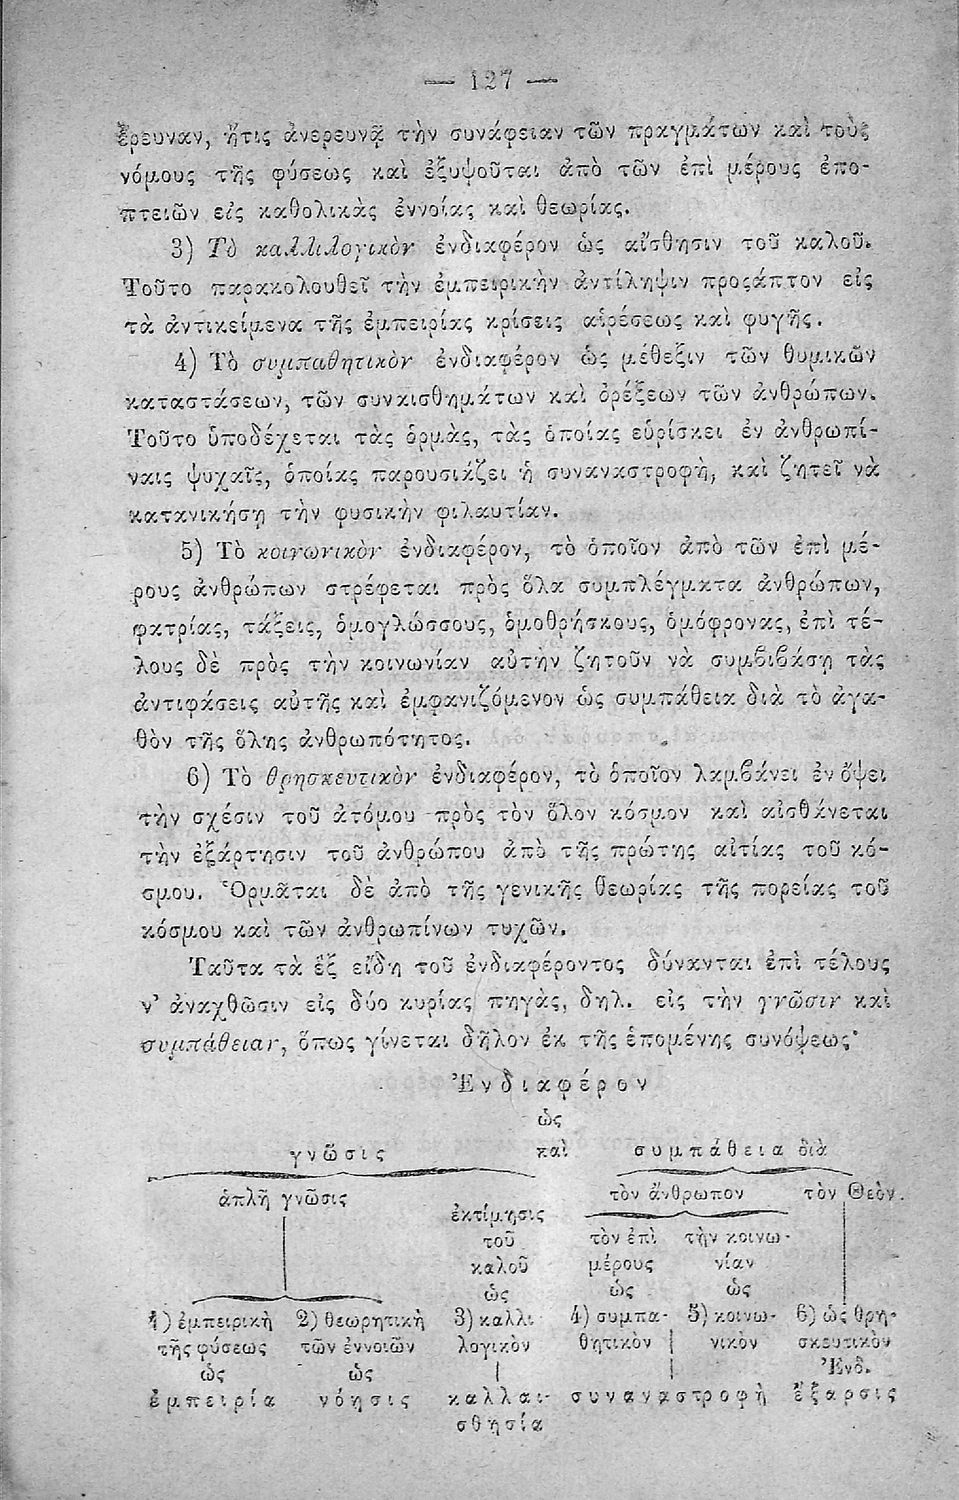 — 127 —
ἔρευναν, ἥτις ἀνερευνᾷ τὴν συνάφειαν τῶν πραγμάτων καὶ τοὺς
νόμους τῆς φύσεως καὶ ἐξυψοῦται ἀπὸ τῶν ἐπὶ μέρους ἐπο-
πτειῶν εἰς καθολικὰς ἐννοίας καὶ θεωρίας.
3) Τὸ καλλιλογικὸν ἐνδιαφέρον ὡς αἴσθησιν τοῦ καλοῦ.
Τοῦτο παρακολουθεῖ τὴν ἐμπειρικὴν ἀντίληψιν προςάπτον εἰς
τὰ ἀντικείμενα τῆς ἐμπειρίας κρίσεις αἱρέσεως καὶ φυγῆς.
4) Τὸ συμπαθητικὸν ἐνδιαφέρον ὡς μέθεξιν τῶν θυμικῶν
καταστάσεων, τῶν συναισθημάτων καὶ ὀρέξεων τῶν ἀνθρώπων.
Τοῦτο ὑποδέχεται τὰς ὁρμὰς, τὰς ὁποίας εὑρίσκει ἐν ἀνθρωπί-
ναις ψυχαῖς, ὁποίας παρουσιάζει ἡ συναναστροφὴ, καὶ ζητεῖ νὰ
κατανικήσῃ τὴν φυσικὴν φιλαυτίαν.
5) Τὸ κοινωνικὸν ἐνδιαφέρον, τὸ ὁποῖον ἀπὸ τῶν ἐπὶ μέ-
ρους ἀνθρώπων στρέφεται πρὸς ὅλα συμπλέγματα ἀνθρώπων,
φατρίας, τάξεις, ὁμογλώσσους, ὁμοθρήσκους, ὁμόφρονας, ἐπὶ τέ-
λους δὲ πρὸς τὴν κοινωνίαν αὐτὴν ζητοῦν νὰ συμβιβάσῃ τὰς
ἀντιφάσεις αὐτῆς καὶ ἐμφανιζόμενον ὡς συμπάθεια διὰ τὸ ἀγα-
θὸν τῆς ὅλης ἀνθρωπότητος.
6) Τὸ θρησκευτικὸν ἐνδιαφέρον, τὸ ὁποῖον λαμβάνει ἐν ὄψει
τὴν σχέσιν τοῦ ἀτόμου πρὸς τὸν ὅλον κόσμον καὶ αἰσθάνεται
τὴν ἐξάρτησιν τοῦ ἀνθρώπου ἀπὸ τῆς πρώτης αἰτίας τοῦ κό-
σμου. Ὁρμᾶται δὲ ἀπὸ τῆς γενικῆς θεωρίας τῆς πορείας τοῦ
κόσμου καὶ τῶν ἀνθρωπίνων τυχῶν.
Ταῦτα τὰ ἓξ εἴδη τοῦ ἐνδιαφέροντος δύνανται ἐπὶ τέλους
ν' ἀναχθῶσιν εἰς δύο κυρίας πηγὰς, δηλ. εἰς τὴν γνῶσιν καὶ
συμπάθειαν, ὅπως γίνεται δῆλον ἐκ τῆς ἑπομένης συνόψεως·
Ἐνδιαφέρον
ὡς
γνῶσις καὶ συμπάθεια διὰ
ἁπλῆ γνῶσις τὸν ἄνθρωπον τὸν Θεὸν.
ἐκτίμησις
τοῦ τὸν ἐπὶ τὴν κοινω-
καλοῦ μέρους νίαν
ὡς ὡς ὡς
1) ἐμπειρικὴ 2) θεωρητικὴ 3) καλλι 4) συμπα- 5) κοινω- 6) ὡς θρη-
τῆς φύσεως τῶν ἐννοιῶν λογικὸν θητικὸν νικὸν σκευτικὸν
ὡς ὡς Ἐνδ.
ἐμπειρία νόησις καλλαι- συναναστροφὴ ἔξαρσις
σθησία